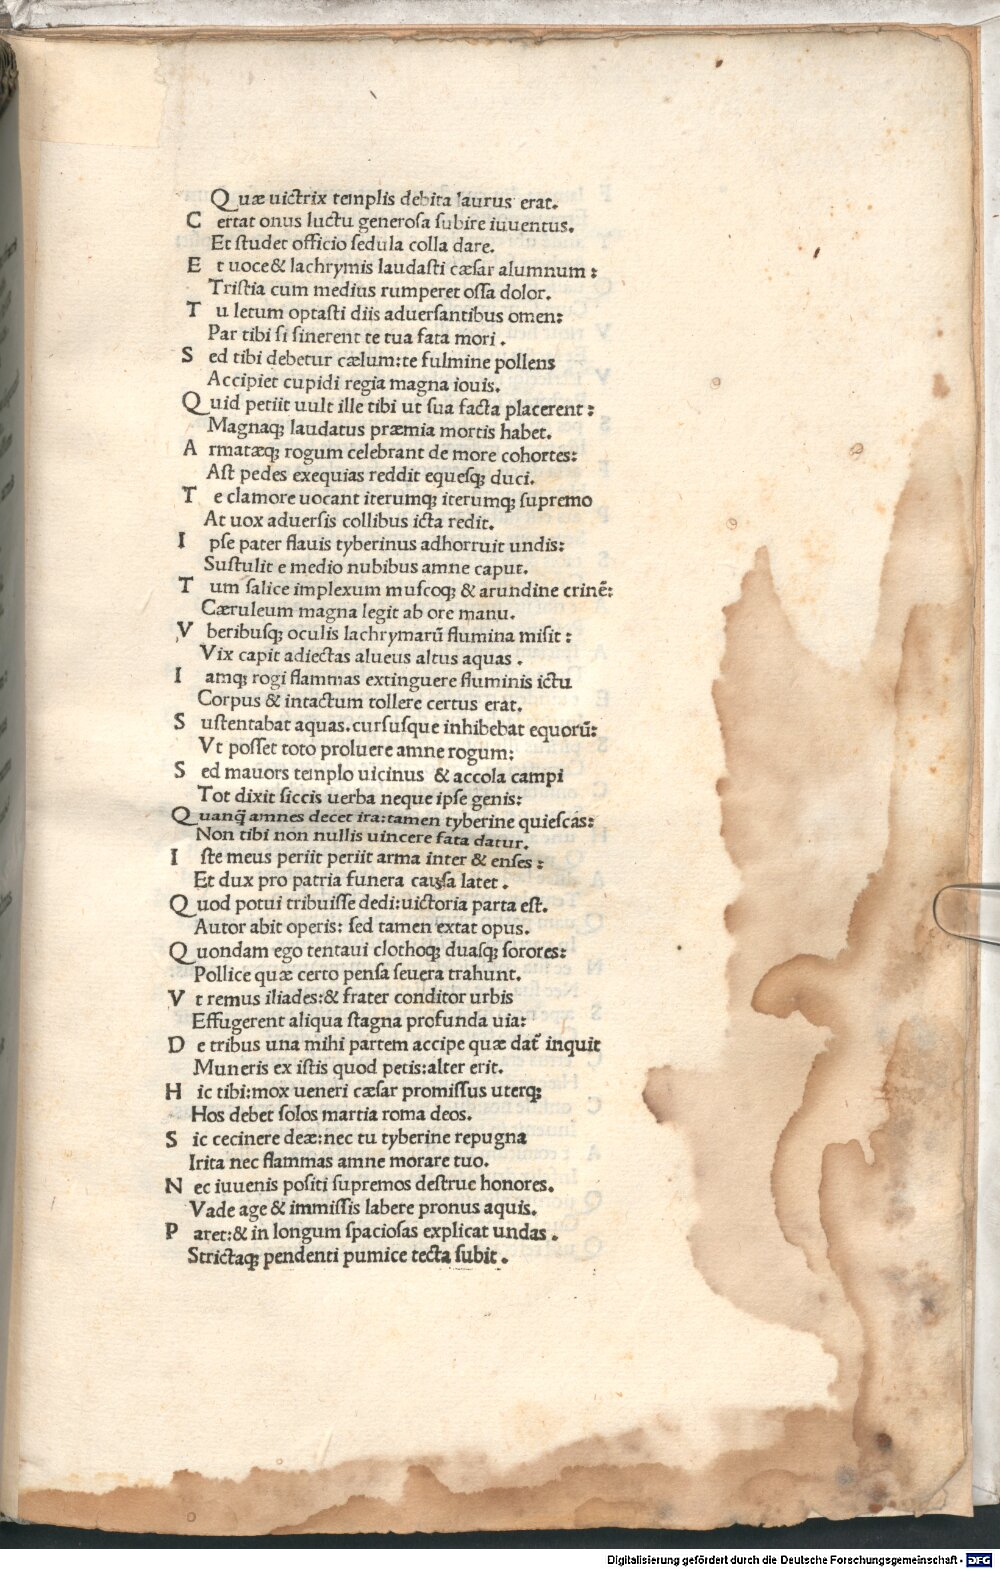 Quæ uictrix templis debita laurus erat.
Certat onus luctu generosa subire iuuentus.
Et studet officio sedula colla dare.
Et uoce & lachrymis laudasti cæsar alumnum:
Tristia cum medius rumperet ossa dolor.
Tu letum optasti diis aduersantibus omen:
Par tibi si sinerent te tua fata mori.
Sed tibi debetur cælum: te fulmine pollens
Accipiet cupidi regia magna iouis.
Quid petiit uult ille tibi ut sua facta placerent:
Magnaqꝫ laudatus præmia mortis habet.
Armatæqꝫ rogum celebrant de more cohortes:
Ast pedes exequias reddit equesqꝫ duci.
Te clamore uocant iterumqꝫ iterumqꝫ supremo
At uox aduersis collibus icta redit.
Ipse pater flauis tyberinus adhorruit undis:
Sustulit e medio nubibus amne caput.
Tum salice implexum muscoqꝫ & arundine crinē:
Cæruleum magna legit ab ore manu.
Vberibusqꝫ oculis lachrymarū flumina misit:
Vix capit adiectas alueus altus aquas.
Iamqꝫ rogi flammas extinguere fluminis ictu
Corpus & intactum tollere certus erat.
Sustentabat aquas. cursusque inhibebat equorū:
Vt posset toto proluere amne rogum:
Sed mauors templo uicinus & accola campi
Tot dixit siccis uerba neque ipse genis:
Quanq̄ amnes decet ira: tamen tyberine quiescas:
Non tibi non nullis uincere fata datur.
Iste meus periit periit arma inter & enses:
Et dux pro patria funera causa latet.
Quod potui tribuisse dedi: uictoria parta est.
Autor abit operis: sed tamen extat opus.
Quondam ego tentaui clothoqꝫ duasqꝫ sorores:
Pollice quæ certo pensa seuera trahunt.
Vt remus iliades: & frater conditor urbis
Effugerent aliqua stagna profunda uia:
De tribus una mihi partem accipe quæ dat̄ inquit
Muneris ex istis quod petis: alter erit.
Hic tibi: mox ueneri cæsar promissus uterqꝫ
Hos debet solos martia roma deos.
Sic cecinere deæ: nec tu tyberine repugna
Irita nec flammas amne morare tuo.
Nec iuuenis positi supremos destrue honores.
Vade age & immissis labere pronus aquis.
Paret: & in longum spaciosas explicat undas.
Strictaqꝫ pendenti pumice tecta subit.
Digitalisierung gefördert durch die Deutsche Forschungsgemeinschaft - DFG